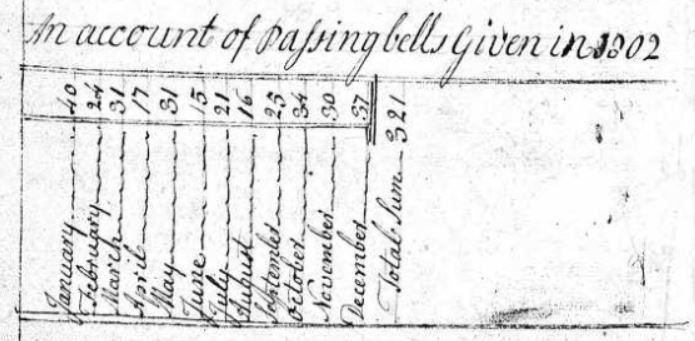 An account of Paſsing bells Given in 1802
January 40
February 24
March 31
April 17
May 31
June 15
July 21
August 16
September 25
October 34
November 30
December 37
Total Sum 321